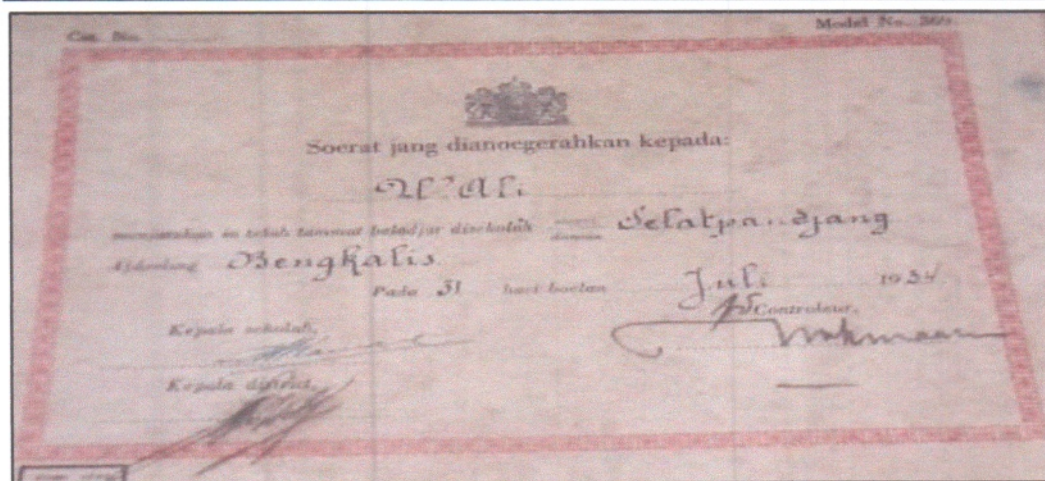 Model No.
Soerat jang dianoegerahkan kepada:
M? Ali
telah tammat beladjar disekolah Selatpandjang
Afdeeling Bengkalis
Pada 31 hari boelan Juli 1934
Controleur,
Kepala sekolah,
Kepala district,